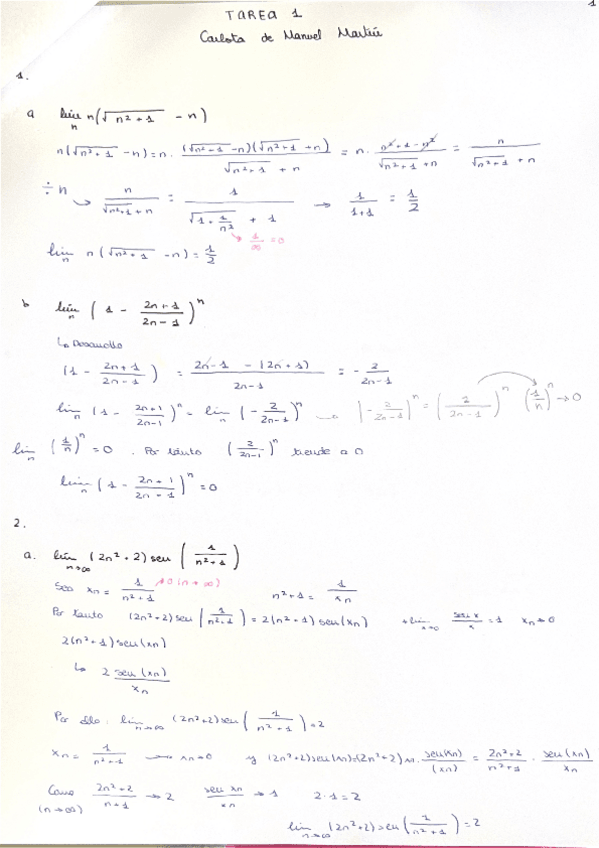 1
TAREA 1
Carlota de Manuel Martín
1.
a lim_n n(√(n²+1) - n)
n(√(n²+1) - n) = n · (√(n²+1) - n)(√(n²+1) + n) / (√(n²+1) + n) = n · (n²+1-n²) / (√(n²+1) + n) = n / (√(n²+1) + n)
÷n → n / (√(n²+1) + n) = 1 / (√(1+1/n²) + 1) → 1/(1+1) = 1/2
→ 1/∞ = 0
lim_n n(√(n²+1) - n) = 1/2
b lim_n (1 - (2n+1)/(2n-1))^n
↳ Desarrollo
(1 - (2n+1)/(2n-1)) = (2n-1 - (2n+1))/(2n-1) = - 2/(2n-1)
lim_n (1 - (2n+1)/(2n-1))^n = lim_n (- 2/(2n-1))^n → |- 2/(2n-1)|^n = (2/(2n-1))^n (1/n)^n → 0
lim_n (1/n)^n = 0 . Por tanto (2/(2n-1))^n tiende a 0
lim_n (1 - (2n+1)/(2n-1))^n = 0
2.
a. lim_{n→∞} (2n²+2) sen (1/(n²+1))
Sea x_n = 1/(n²+1) → 0 (n→∞) n²+1 = 1/x_n
Por tanto (2n²+2) sen (1/(n²+1)) = 2(n²+1) sen(x_n) + lim_{x→0} sen x / x = 1 x_n → 0
2(n²+1) sen(x_n)
↳ 2 sen(x_n)/x_n
Por ello: lim_{n→∞} (2n²+2) sen (1/(n²+1)) = 2
x_n = 1/(n²+1) → x_n→0 y (2n²+2) sen(x_n) = (2n²+2) x_n · sen(x_n)/(x_n) = (2n²+2)/(n²+1) · sen(x_n)/x_n
Como (2n²+2)/(n+1) → 2 sen x_n / x_n → 1 2·1 = 2
(n→∞)
lim_{n→∞} (2n²+2) sen (1/(n²+1)) = 2